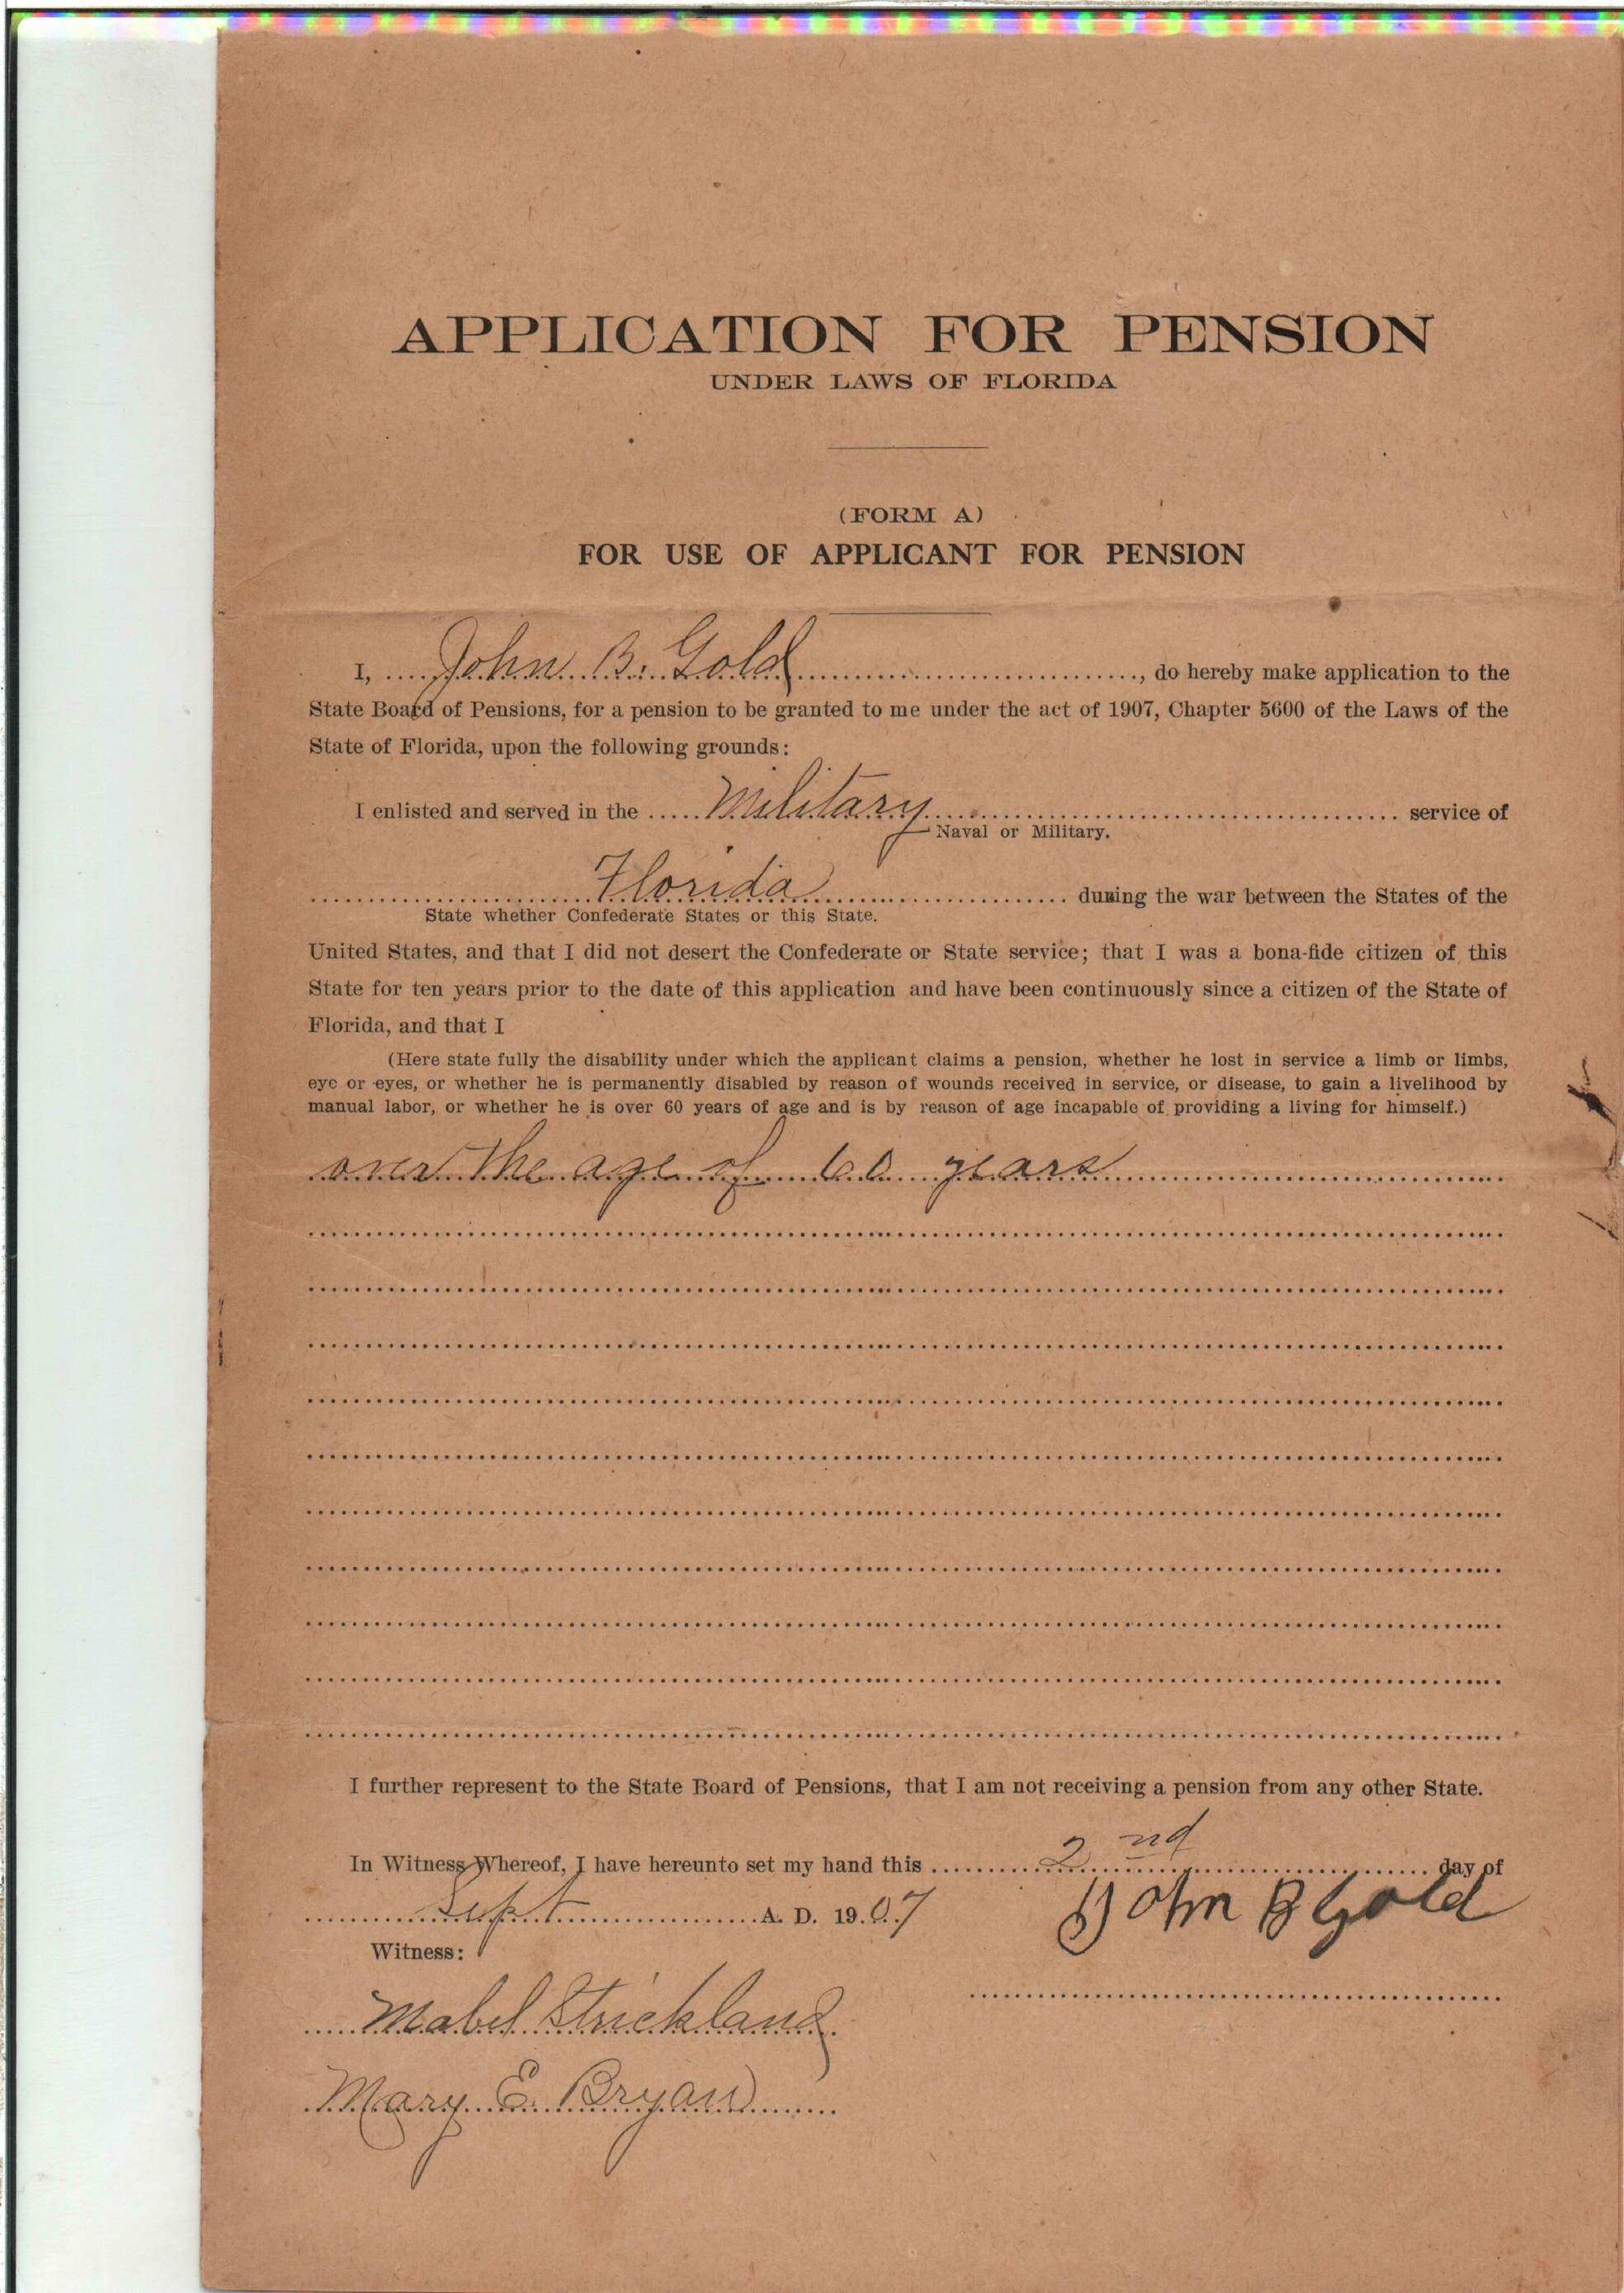 APPLICATION FOR PENSION
UNDER LAWS OF FLORIDA
(FORM A)
FOR USE OF APPLICANT FOR PENSION
I, John B. Gold, do hereby make application to the
State Board of Pensions, for a pension to be granted to me under the act of 1907, Chapter 5600 of the Laws of the
State of Florida, upon the following grounds:
I enlisted and served in the Military service of
Naval or Military.
Florida during the war between the States of the
State whether Confederate States or this State.
United States, and that I did not desert the Confederate or State service; that I was a bona-fide citizen of this
State for ten years prior to the date of this application and have been continuously since a citizen of the State of
Florida, and that I
(Here state fully the disability under which the applicant claims a pension, whether he lost in service a limb or limbs,
eye or eyes, or whether he is permanently disabled by reason of wounds received in service, or disease, to gain a livelihood by
manual labor, or whether he is over 60 years of age and is by reason of age incapable of providing a living for himself.)
over the age of 60 years
I further represent to the State Board of Pensions, that I am not receiving a pension from any other State.
In Witness Whereof, I have hereunto set my hand this 2nd day of
Sept A. D. 1907
John B Gold
Witness:
Mabel Strickland
Mary E. Bryan